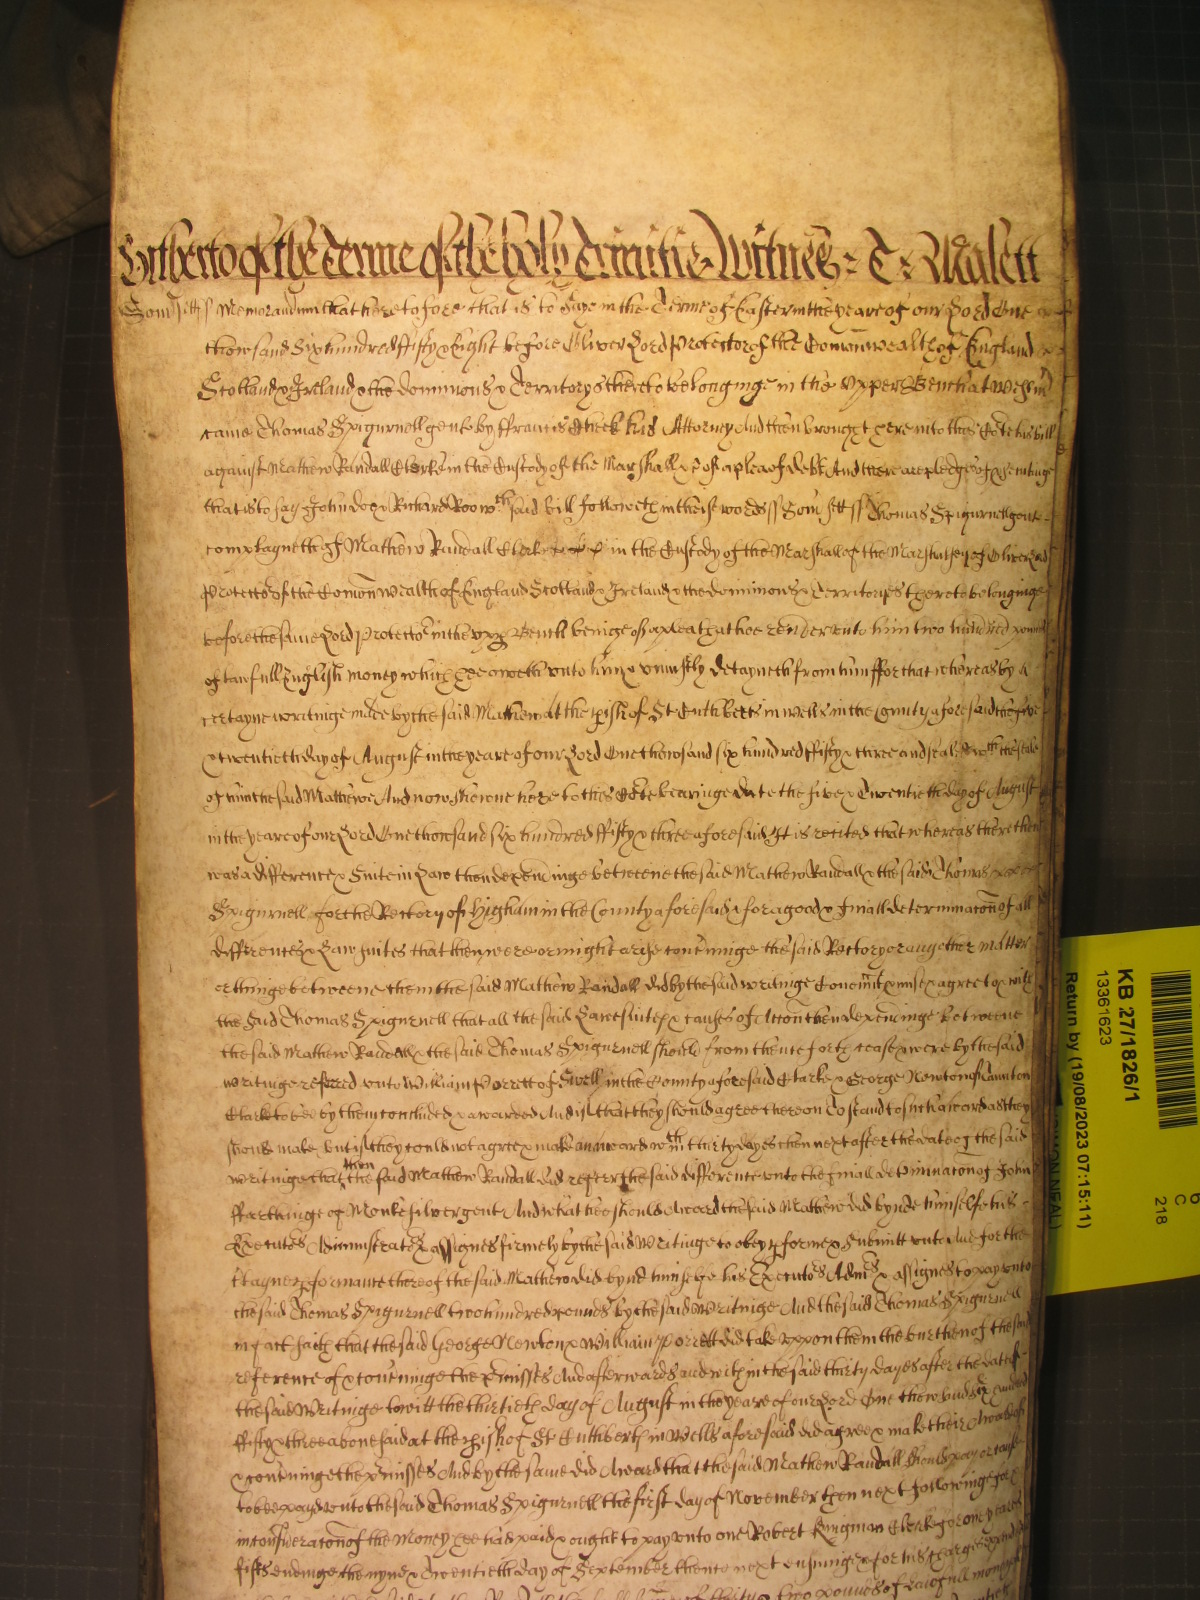 Hitherto of the Terme of the holy Trinitie Witnes : T : Malett
Som~sett ss Memorandum that heretofore that is to saye in the Terme of Easter in the yeare of our Lord One
thowsand Six hundred ffifty & Eight before Oliver Lord Protector of the Comonwealth of England
Scotland & Ireland & the dominions & Territorys thereto belonginge in the Upper Bench at Westm
came Thomas Spigurnell gent by ffrancis Cheek his Attorney And then brought here into the Corte his bill
against Mathew Randall Clerke in the Custody of the Marshall &c of a plea of debt And there are pledges of prosecutinge
that is to say John doe & Richard Roo wth said bill followeth in theise words ss Som~sett ss Thomas Spigurnell gent
complayneth of Mathew Randall Clerk in the Custody of the Marshall of the Marshalsey of Oliver Lord
Protector of the Comonwealth of England Scotland & Ireland & the dominions & Territoryes thereto belonginge
before the same Lord Protector in the upper Bench beinge of a plea that hee render unto him two hundred pounds
of lawfull English money which hee oweth unto him & uniustly detayneth from him ffor that whereas by a
certayne writinge made by the said Mathew at the pish of St Cuthberts in Wells in the County aforesaid the five
& twentieth day of August in the yeare of our Lord One thowsand six hundred ffifty & three and sealed wth the seale
of him the said Mathewe And now shewne here to this Corte bearinge date the five & Twentieth day of August
in the yeare of our Lord One thowsand six hundred ffifty & three aforesaid It is recited that whereas there then
was a difference & Suite in Law then dependinge betweene the said Mathew Randall & the said Thomas
Spigurnell for the Rectory of Higham in the County aforesaid & for a good & finall determinacon of all
differences & Law suites that then were or might arise concninge the said Rectory or any other matter
or thinge betweene them the said Mathew Randall did by the said writinge Covennt pmise & agree to & with
the said Thomas Spigurnell that all the said Lawe suites & causes of Accon then dependinge betweene
the said Mathew Randall & the said Thomas Spigurnell should from thenceforth cease & were by the said
writinge referred unto William Porrett of Swell in the County aforesaid Clarke & George Newton of Taunton
Clarke to bee by them concluded & awarded And if that they should agree thereon To stand to such award as they
should make but if they could not agree & make an award wthin thirty dayes then next after the date of the said
writinge that then the said Mathew Randall did referr the said difference unto the finall detminacon of John
ffarthinge of Monksilver gent And what hee should Award the said Mathew did bynde himselfe his
Executors Administrators & assignes firmely by the said Writinge to obey pforme & Submitt unto And for the
playne pformance thereof the said Mathew did bynd himselfe his Executors Adm~s & assignes to pay unto
the said Thomas Spigurnell two hundred pounds by the said Writinge And the said Thomas Spigurnell
in fact saith that the said George Newton & William Porrett did take uppon them the burthen of the said
reference of & concninge the Pmisses And afterwards and within the said thirty dayes after the date of
the said Writinge to witt the thirtieth day of August in the yeare of our Lord One thowsand six hundred
ffifty & three abovesaid at the pish of St Cuthberts in Wells aforesaid did agree & make their Award of
& concninge the Pmisses And by the same did Award that the said Mathew Randall should pay or cause
to bee payd unto the said Thomas Spigurnell the first day of November then next followinge
in consideracon of the Money hee had paid & ought to pay unto one Robert Kingman Clerke for one yeares
fifts endinge the nyne & Twentieth day of September thence next ensuinge & for his charges
pounds of lawfull money
KB 27/1826/1
13361623
Return by (19/08/2023 07:15:11)
C
218